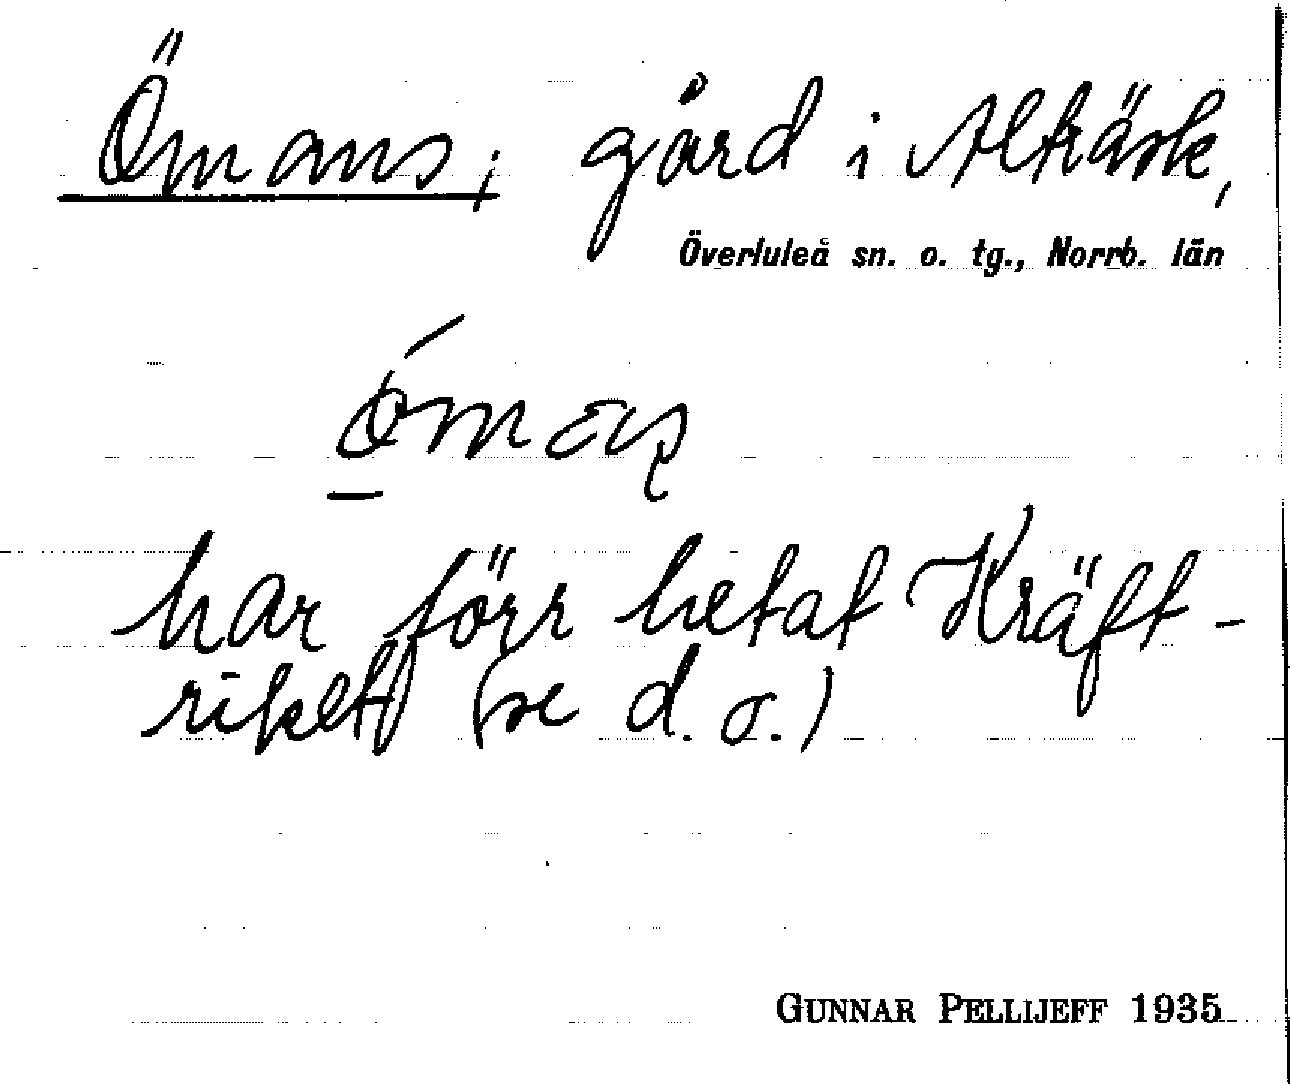 Ömans, gård i Alträsk,
Överluleå sn. o. tg., Norrb. län
har förr hetat Kräft-
riket (se d. o.)
GUNNAR PELLIJEFF 1935